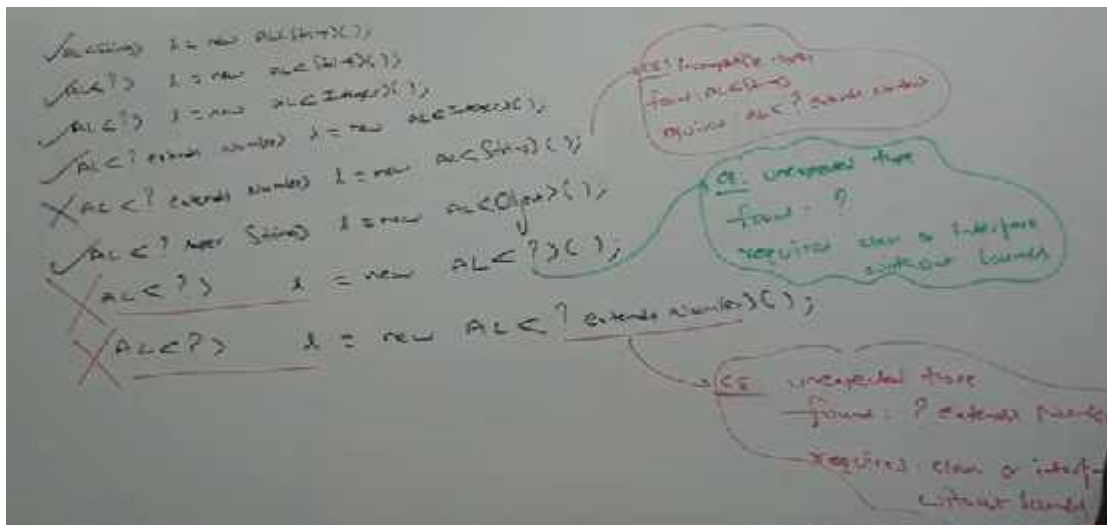 ✓ AL<String> l = new AL<String>();
✓ AL<?> l = new AL<String>();
✓ AL<?> l = new AL<Integer>();
✓ AL<? extends Number> l = new AL<Integer>();
X AL<? extends Number> l = new AL<String>();
✓ AL<? super String> l = new AL<Object>();
X AL<?> l = new AL<?>();
X AL<?> l = new AL<? extends Number>();
CE: incompatible types
found: AL<String>
required: AL<? extends Number>
CE: unexpected type
found: ?
required class or interface
without bounds
CE: unexpected type
found: ? extends Number
required: class or interf
without bounds